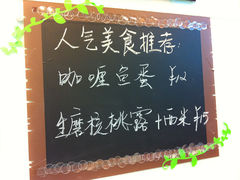 人气美食推荐:
咖喱鱼蛋 ¥12
生磨核桃露+西米 ¥15